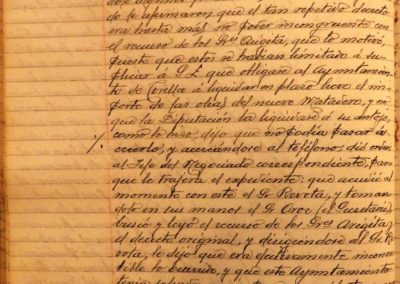 le afirmaron que el tan repetido decreto
era hasta más no poder incongruente con
el recurso de los Sres Angita, que lo motivó,
puesto que estos se habían limitado á su-
plicar á S.E. que obligase al Ayuntamien-
to de Corella á liquidar en plazo breve el im-
porte de las obras del nuevo Matadero, y no
que la Diputación la liquidase á su antojo,
como lo hizo; dijo que no podía pasar á
creerlo, y acercándose al teléfono dió orden
al Jefe del Negociado correspondiente, para
que le trajera el expediente: que acudió al
momento con este el Sr. Revota, y toman-
dolo en sus manos el Sr. Oroz (el Secretario),
buscó y leyó el recurso de los Sres Angita,
el decreto original, y dirigiéndose al Sr. Re-
vota, le dijo que era efectivamente incon-
tible lo ocurrido, y que este Ayuntamiento